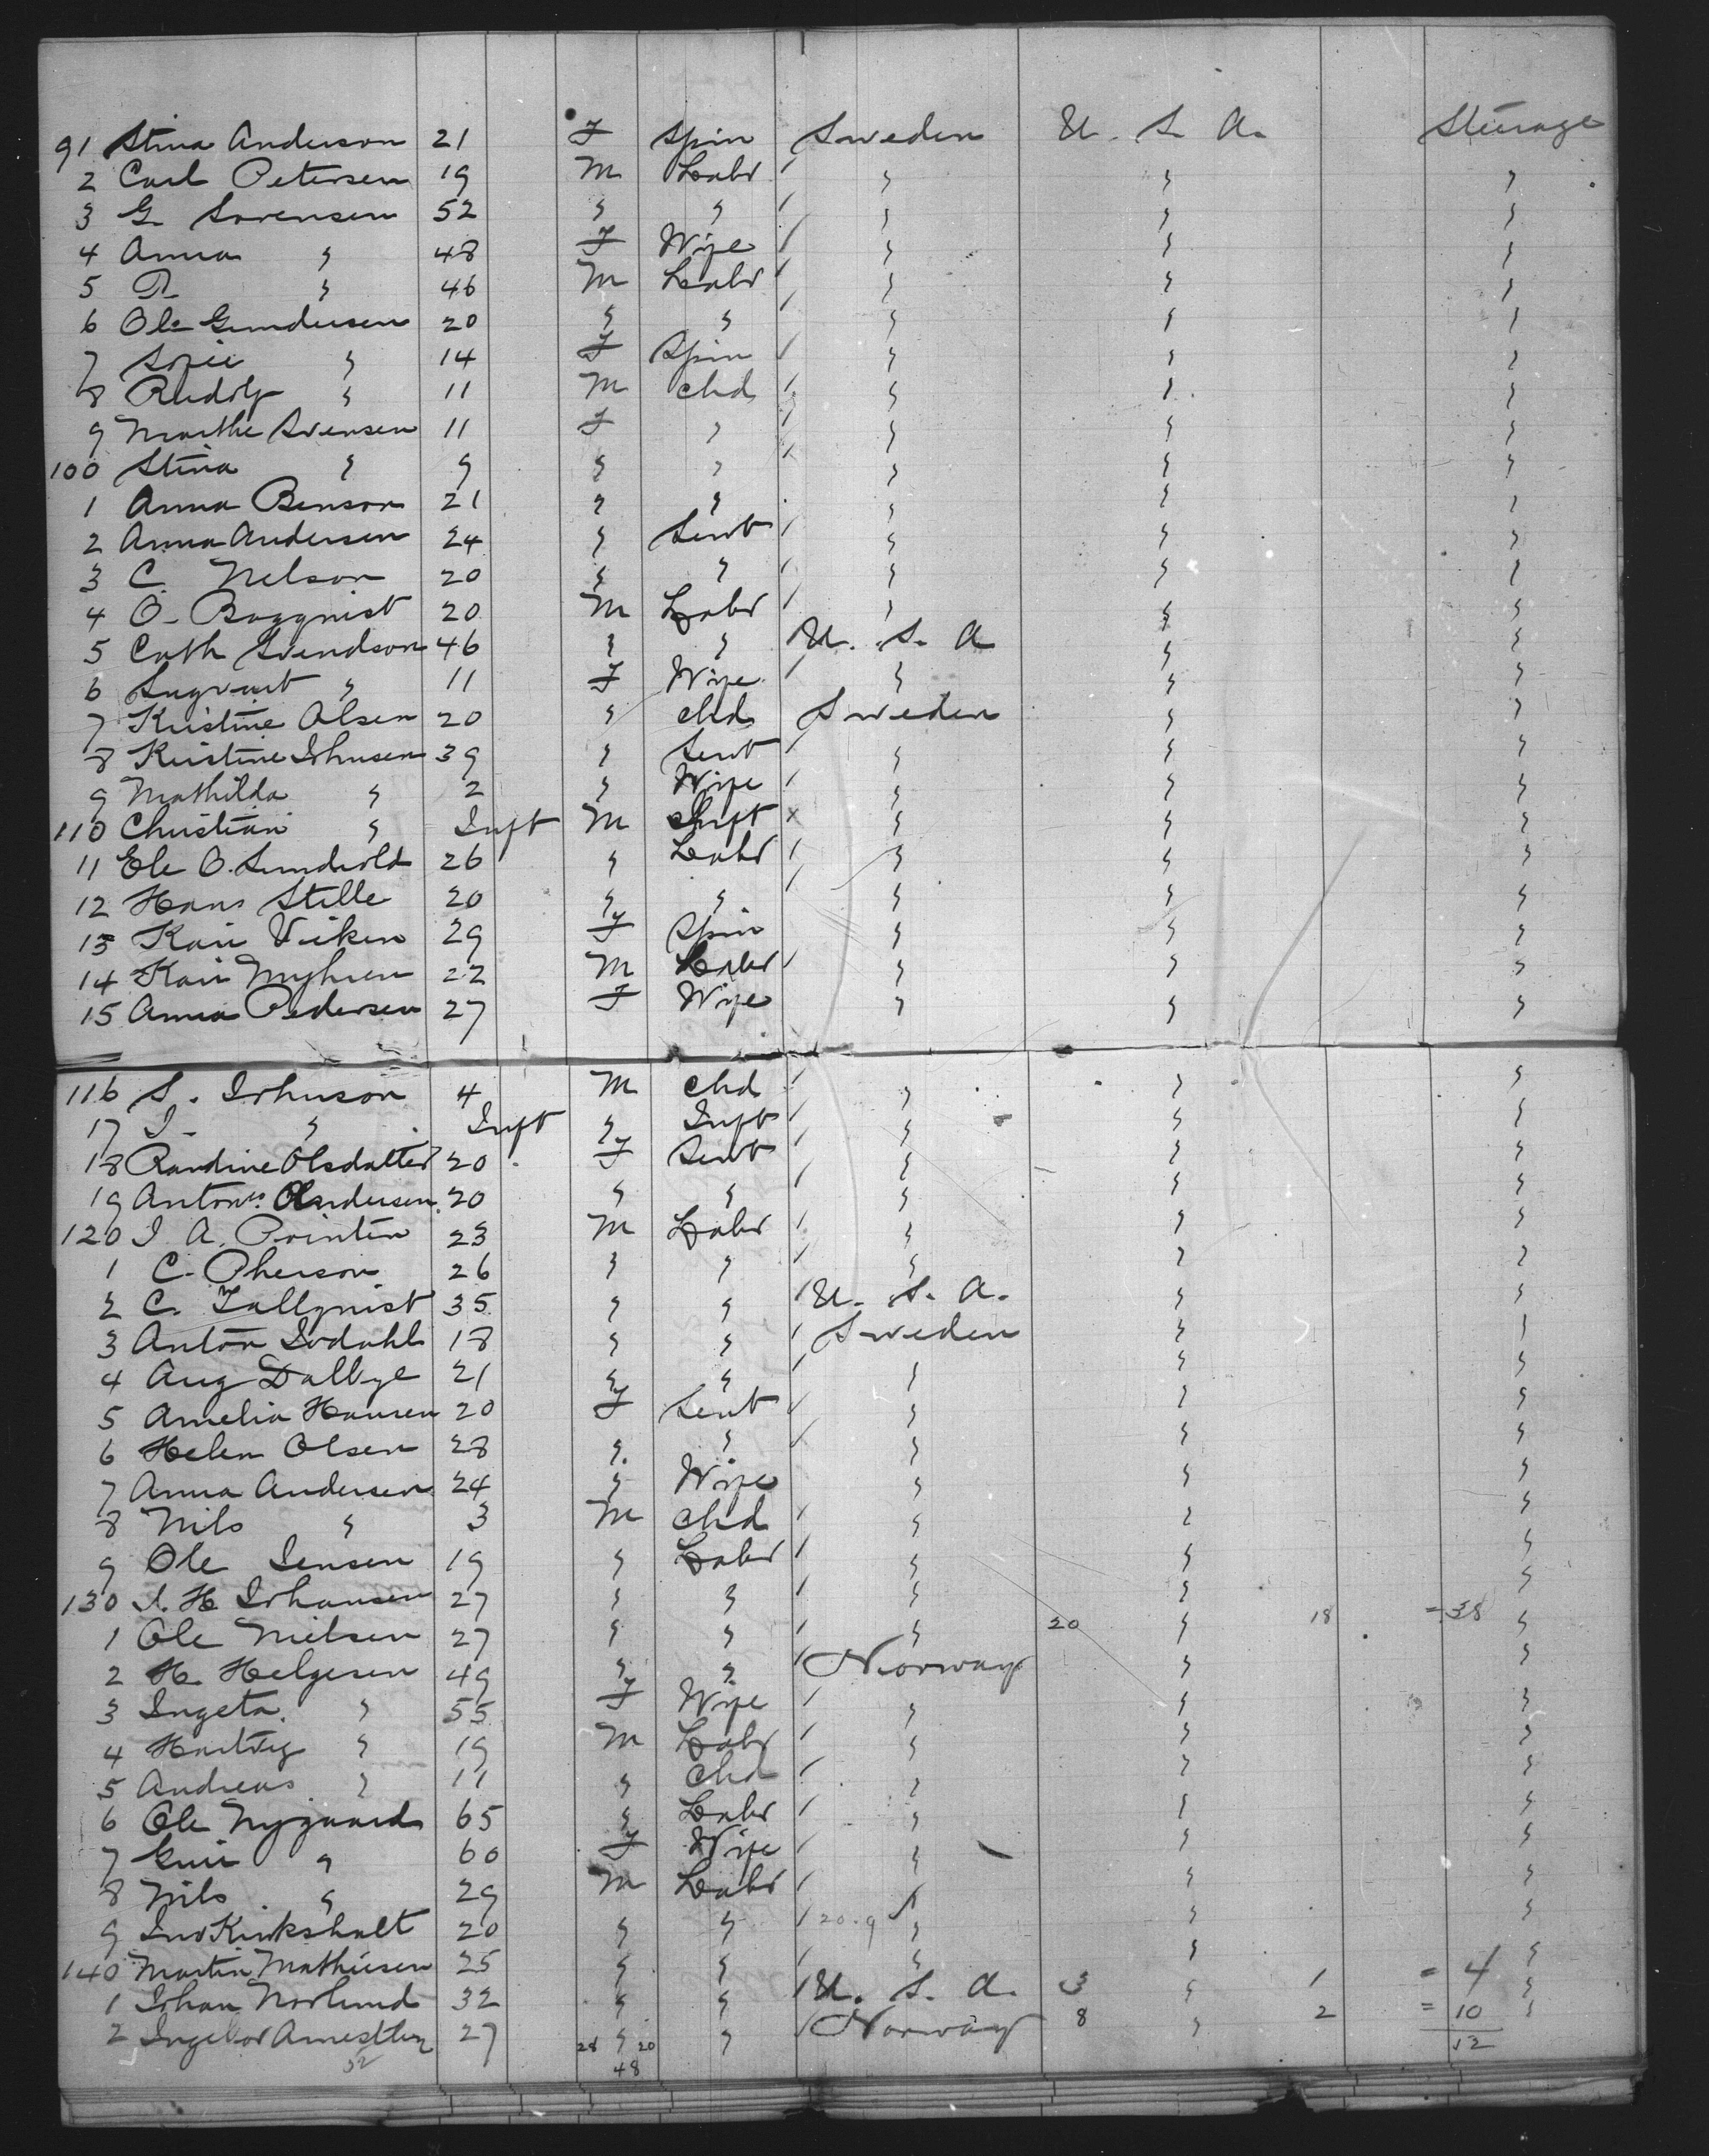 91 Stina Anderson 21 F Spin Sweden U. S. A. Steerage
2 Carl Petersen 19 M Labr " " "
3 G. Sorensen 52 " " " " "
4 Anna " 48 F Wife " " "
5 P. " 46 M Labr " " "
6 Ole Gundersen 20 " " " " "
7 Sofie " 14 F Spin " " "
8 Rudolf " 11 M chd " " "
9 Marthe Svensen 11 F " " " "
100 Stina " 9 " " " " "
1 Anna Benson 21 " " " " "
2 Anna Andersen 24 " Sevt " " "
3 C. Nelson 20 " " " " "
4 O. Boggnist 20 M Labr " " "
5 Cath Svendson 46 " " U. S. A " "
6 " 11 F Wife " " "
7 Kristine Olsen 20 " chd Sweden " "
8 Kristine Johnsen 39 " Sevt " " "
9 Mathilda " 2 " Wife " " "
110 Christian " Inft M Inft " " "
11 Ele O. 26 " Labr " " "
12 Hans Stille 20 " " " " "
13 Kari Viken 29 F Spin " " "
14 Kari Myhren 22 M Labr " " "
15 Anna Pedersen 27 F Wife " " "
116 S. Johnson 4 M chd " " "
17 J. " Inft " Inft " " "
18 Randine Olsdatter 20 F Sevt " " "
19 Andersen 20 " " " " "
120 J. A. Pointin 23 M Labr " " "
1 C. Pherson 26 " " " " "
2 C. Tallqnist 35 " " U. S. A. " "
3 Anton Sodahl 18 " " Sweden " "
4 Aug Dalbye 21 " " " " "
5 Amelia Hansen 20 F Sevt " " "
6 Helen Olsen 28 " " " " "
7 Anna Andersen 24 " Wife " " "
8 Nils " 3 M chd " " "
9 Ole Jensen 19 " Labr " " "
130 J. H. Johansen 27 " " " " "
1 Ole Nielsen 27 " " " 20 " 18 = 38 "
2 H. Helgesen 49 " " Norway " "
3 Ingeta " 55 F Wife " " "
4 Hartvig " 19 M Labr " " "
5 Andreas " 11 " Chd " " "
6 Ole Nygaard 65 " Labr " " "
7 Guri " 60 F Wife " " "
8 Nils " 29 M Labr " " "
9 20 " " 20.9 " " "
140 Martin Mathiesen 25 " " " " "
1 Johan Norlund 32 " " U. S. A. 3 " 1 = 4 "
2 27 28 " 20 " Norway 8 " 2 = 10 "
52 48 12